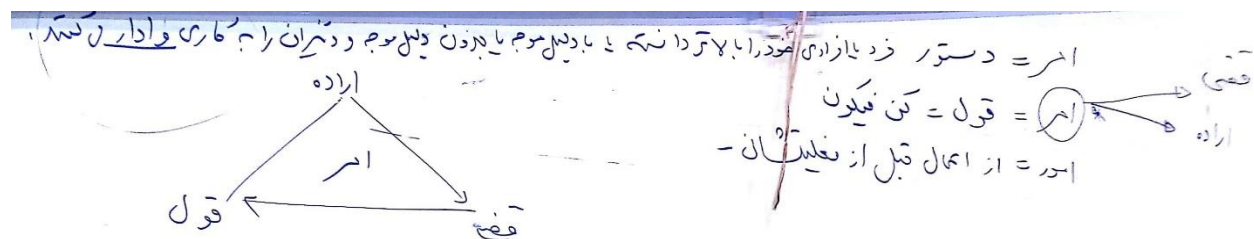 امر = دستور فرد یا افرادی خود را بالاتر دانسته و با دلیل موجه یا بدون دلیل موجه و دیگران را به کاری وادار می‌کنند.
امر = قول = کن فیکون
قضی
اراده
امور = از اعمال قبل از فعلیتشان -
اراده
امر
قول
قضی